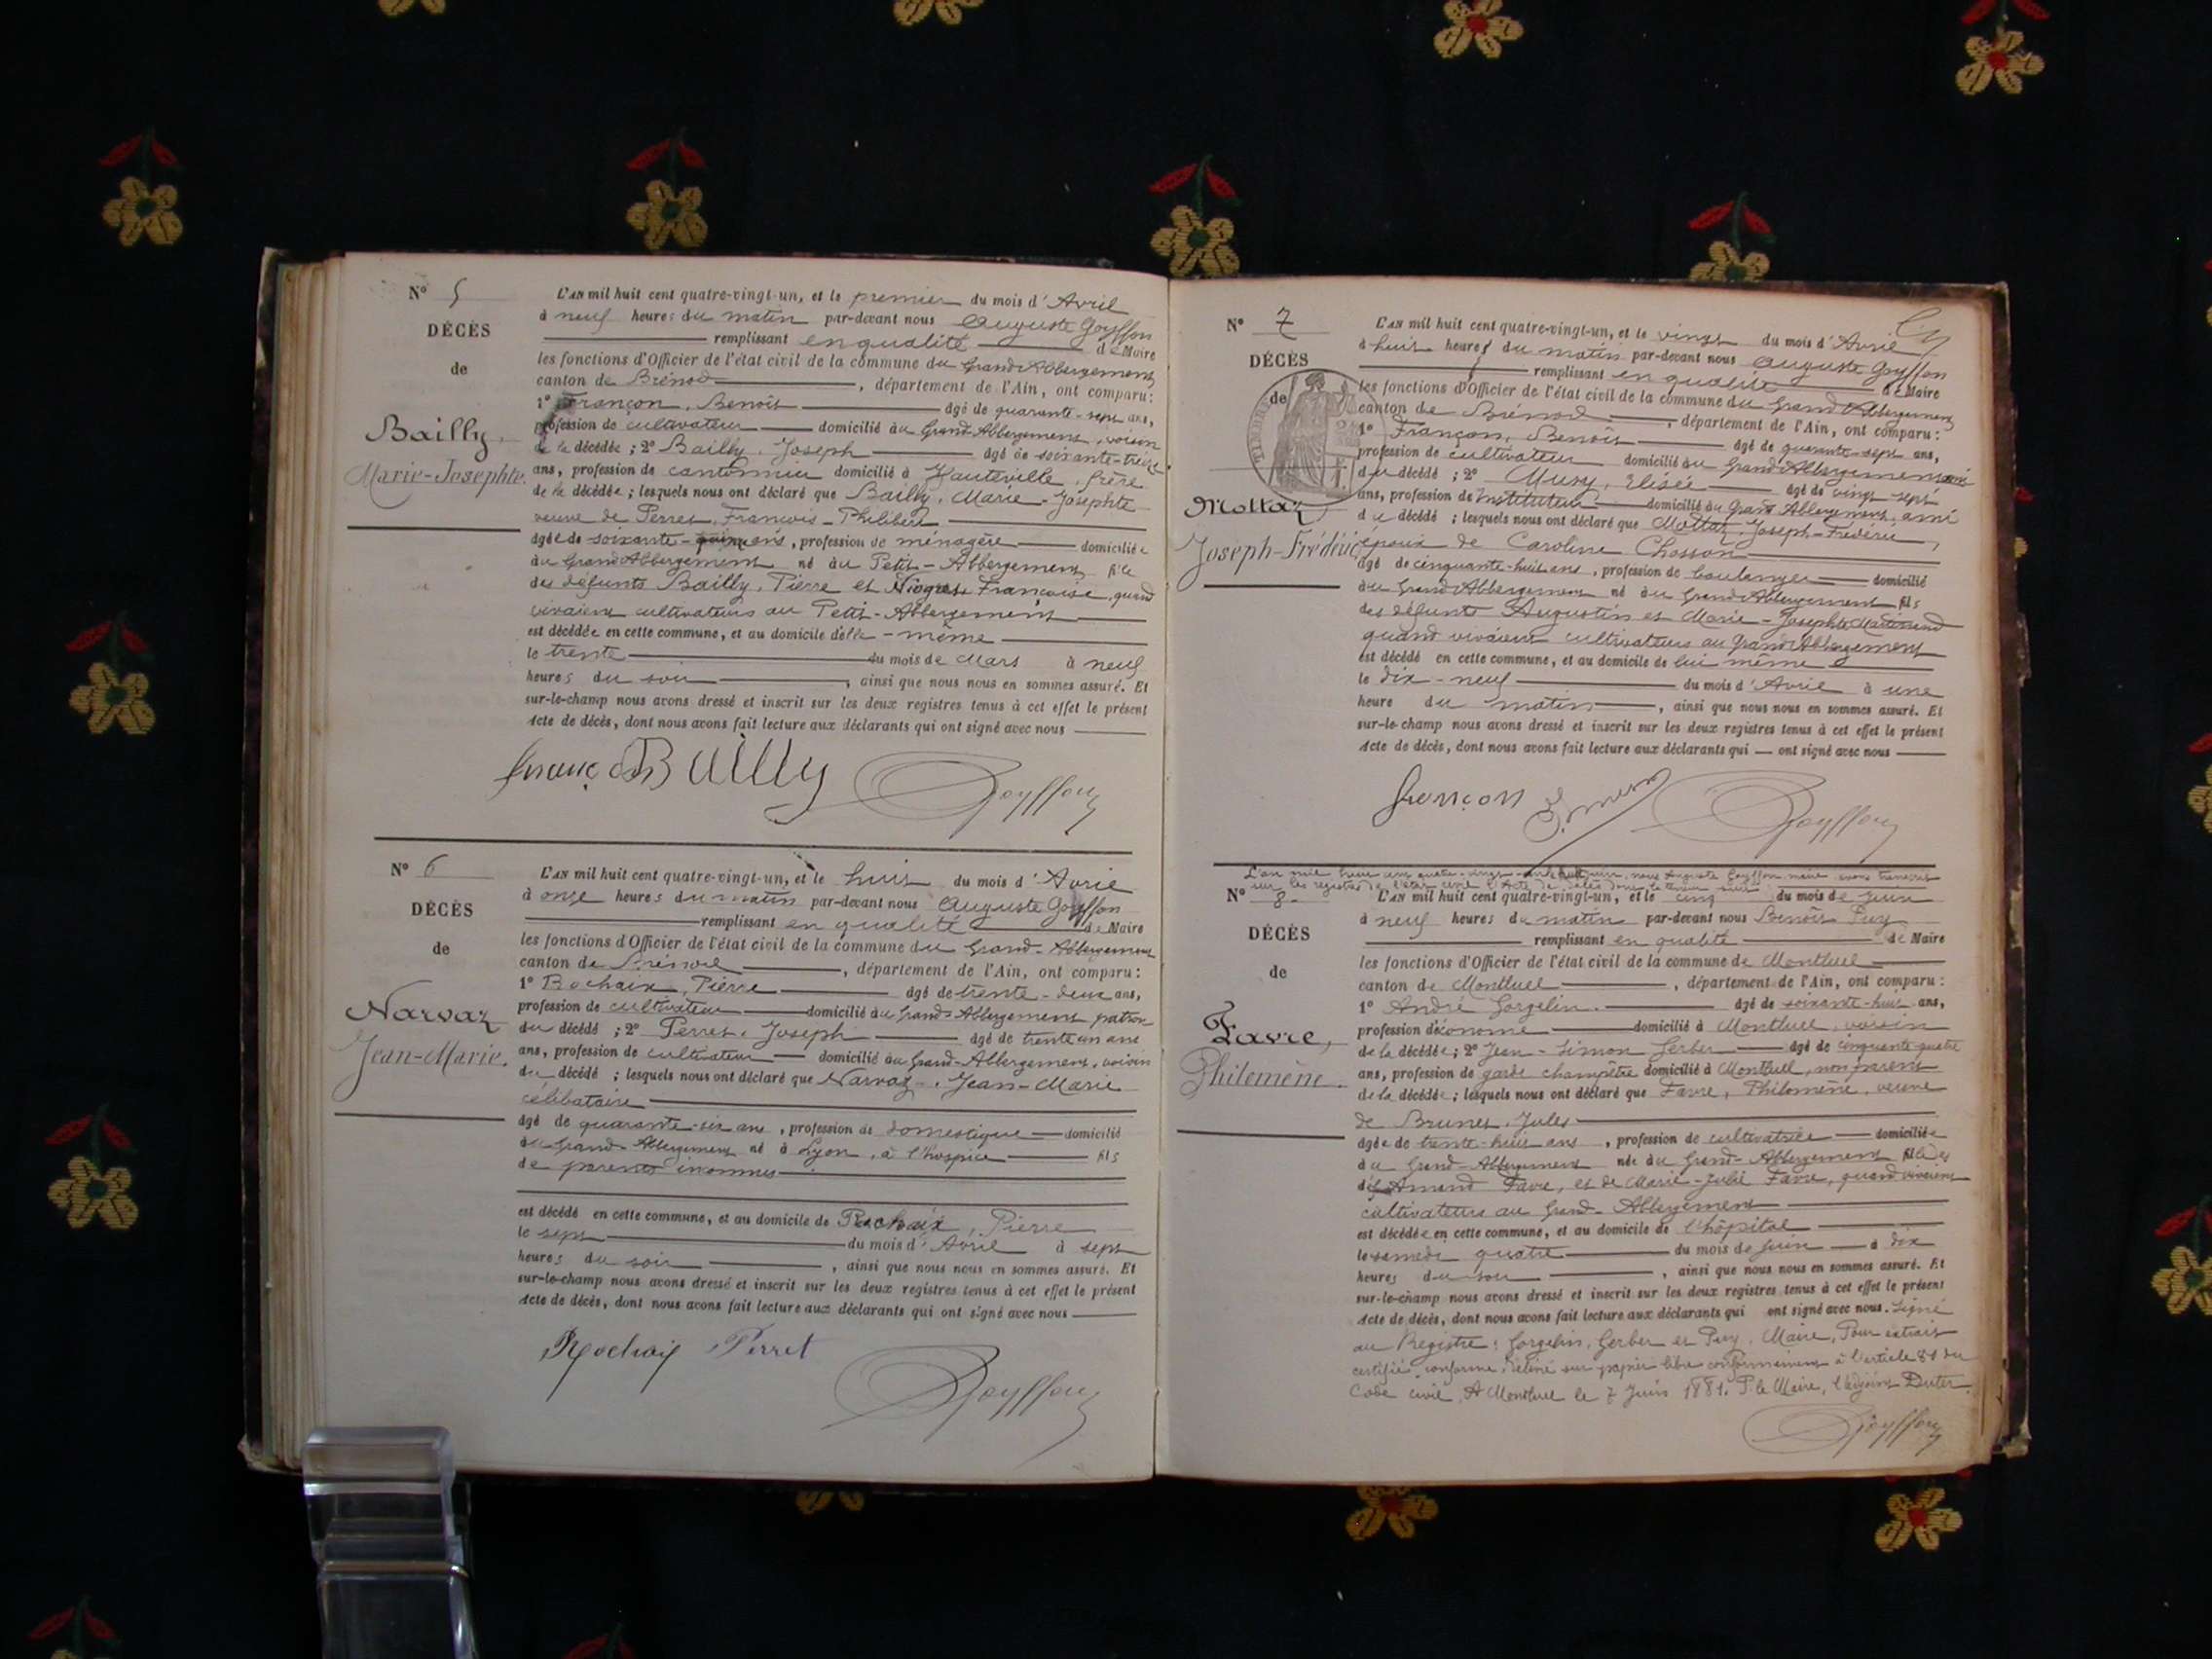 N° 5
DÉCÈS
de
Bailly,
Marie-Josephte.
L'AN mil huit cent quatre-vingt-un, et le premier du mois d'Avril
à neuf heures du matin par-devant nous Auguste Goyffon
remplissant en qualité de Maire
les fonctions d'Officier de l'état civil de la commune du Grand-Abbergement
canton de Brénod, département de l'Ain, ont comparu:
1° Françon, Benoit âgé de quarante-sept ans,
profession de cultivateur domicilié au Grand-Abbergement, voisin
de la décédée; 2° Bailly, Joseph âgé de soixante-treize
ans, profession de cantonnier domicilié à Hauteville, frère
de la décédée; lesquels nous ont déclaré que Bailly, Marie-Josephte
veuve de Perret, François-Philibert
âgée de soixante- ans, profession de ménagère domiciliée
au Grand Abbergement né au Petit-Abbergement fille
des défunts Bailly, Pierre et Niogret Françoise, quand
vivaient cultivateurs au Petit-Abbergement
est décédée en cette commune, et au domicile d'elle-même
le trente du mois de Mars à neuf
heures du soir, ainsi que nous nous en sommes assuré. Et
sur-le-champ nous avons dressé et inscrit sur les deux registres tenus à cet effet le présent
Acte de décès, dont nous avons fait lecture aux déclarants qui ont signé avec nous
Bailly Goyffon
N° 6
DÉCÈS
de
Narvaz
Jean-Marie.
L'AN mil huit cent quatre-vingt-un, et le huit du mois d'Avril
à onze heures du matin par-devant nous Auguste Goyffon
remplissant en qualité de Maire
les fonctions d'Officier de l'état civil de la commune du Grand-Abbergement
canton de Brénod, département de l'Ain, ont comparu:
1° Rochaix, Pierre âgé de trente-deux ans,
profession de cultivateur domicilié au Grand-Abbergement patron
du décédé; 2° Perret, Joseph âgé de trente un ans
ans, profession de cultivateur domicilié au Grand-Abbergement, voisin
du décédé; lesquels nous ont déclaré que Narvaz, Jean-Marie
célibataire
âgé de quarante-six ans, profession de domestique domicilié
au Grand-Abbergement né à Lyon, à l'hospice fils
de parents inconnus
est décédé en cette commune, et au domicile de Rochaix, Pierre
le sept du mois d'Avril à sept
heures du soir, ainsi que nous nous en sommes assuré. Et
sur-le-champ nous avons dressé et inscrit sur les deux registres tenus à cet effet le présent
Acte de décès, dont nous avons fait lecture aux déclarants qui ont signé avec nous
Rochaix Perret
Goyffon
N° 7
DÉCÈS
de
TIMBRE
Mottaz
Joseph-Frédéric
L'AN mil huit cent quatre-vingt-un, et le vingt du mois d'Avril
à huit heures du matin par-devant nous Auguste Goyffon
remplissant en qualité de Maire
les fonctions d'Officier de l'état civil de la commune du Grand Abbergement
canton de Brénod, département de l'Ain, ont comparu:
1° Françon, Benoit âgé de quarante-sept ans,
profession de cultivateur domicilié au Grand Abbergement ami
du décédé; 2° Musy, Elisée âgé de vingt-sept
ans, profession de Instituteur domicilié au Grand Abbergement, ami
du décédé; lesquels nous ont déclaré que Mottaz, Joseph-Frédéric,
époux de Caroline Chosson
âgé de cinquante-huit ans, profession de boulanger domicilié
au Grand Abbergement né au Grand Abbergement fils
des défunts Augustin et Marie-Josephte
quand vivaient cultivateurs au Grand Abbergement
est décédé en cette commune, et au domicile de lui même
le dix-neuf du mois d'Avril à une
heure du matin, ainsi que nous nous en sommes assuré. Et
sur-le-champ nous avons dressé et inscrit sur les deux registres tenus à cet effet le présent
Acte de décès, dont nous avons fait lecture aux déclarants qui — ont signé avec nous
Françon Goyffon
L'an mil huit cent quatre-vingt-un juin, nous Auguste Goyffon maire avons transcrit
sur les registres de l'état civil l'acte de décès dont la teneur suit
N° 8
DÉCÈS
de
Favre,
Philomène.
L'AN mil huit cent quatre-vingt-un, et le cinq du mois de Juin
à neuf heures du matin par-devant nous Benoit Puy
remplissant en qualité de Maire
les fonctions d'Officier de l'état civil de la commune de Montluel
canton de Montluel, département de l'Ain, ont comparu:
1° André Gorgelin âgé de soixante-huit ans,
profession d'économe domicilié à Montluel, voisin
de la décédée; 2° Jean-Simon Gerber âgé de cinquante-quatre
ans, profession de garde champêtre domicilié à Montluel, non parent
de la décédée; lesquels nous ont déclaré que Favre, Philomène, veuve
de Brunet, Jules
âgée de trente-huit ans, profession de cultivatrice domiciliée
au Grand-Abbergement née au Grand-Abbergement fille de
Amand Favre, et de Marie-Julie Favre, quand vivaient
cultivateurs au Grand-Abbergement
est décédée en cette commune, et au domicile de l'hôpital
le samedi quatre du mois de Juin à dix
heures du soir, ainsi que nous nous en sommes assuré. Et
sur-le-champ nous avons dressé et inscrit sur les deux registres tenus à cet effet le présent
Acte de décès, dont nous avons fait lecture aux déclarants qui ont signé avec nous. Signé
au Registre: Gorgelin, Gerber et Puy, Maire, Pour extrait
certifié conforme, délivré sur papier libre conformément à l'article 81 du
Code civil, A Montluel le 7 Juin 1881. P. le Maire, l'adjoint Duter.
Goyffon